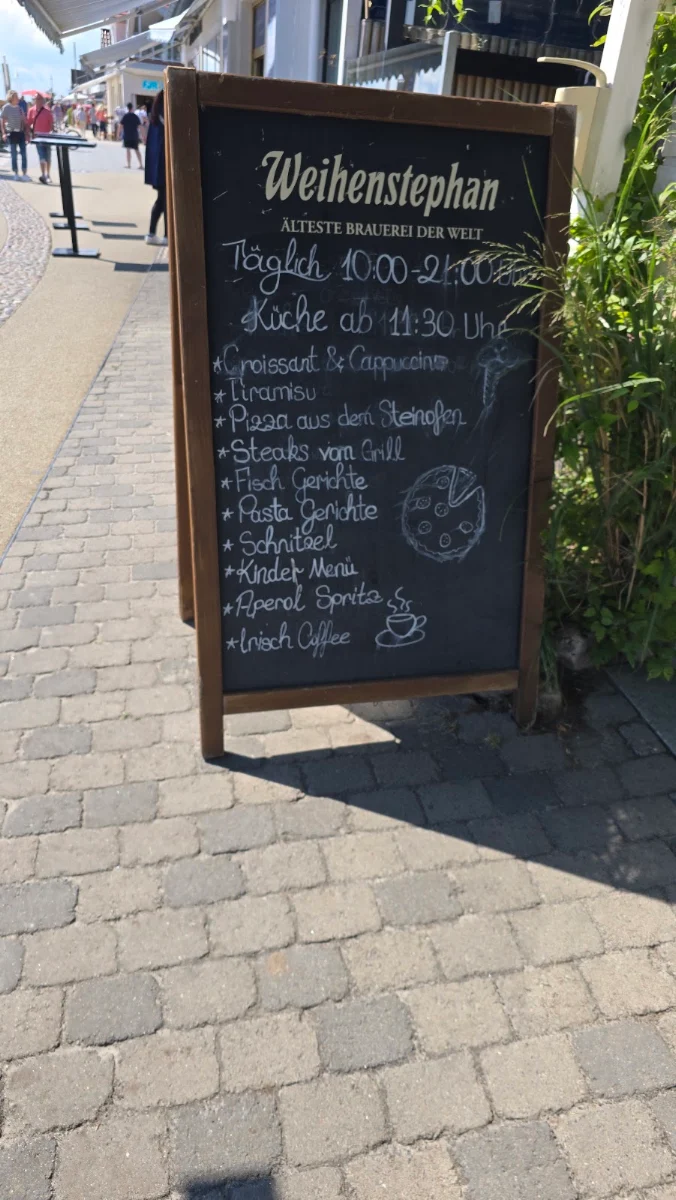 Weihenstephan
ÄLTESTE BRAUEREI DER WELT
Täglich 10:00-21:00 Uhr
Küche ab 11:30 Uhr
*Croissant & Cappuccino
*Tiramisu
*Pizza aus dem Steinofen
*Steaks vom Grill
*Fisch Gerichte
*Pasta Gerichte
*Schnitzel
*Kinder Menü
*Aperol Spritz
*Irisch Coffee